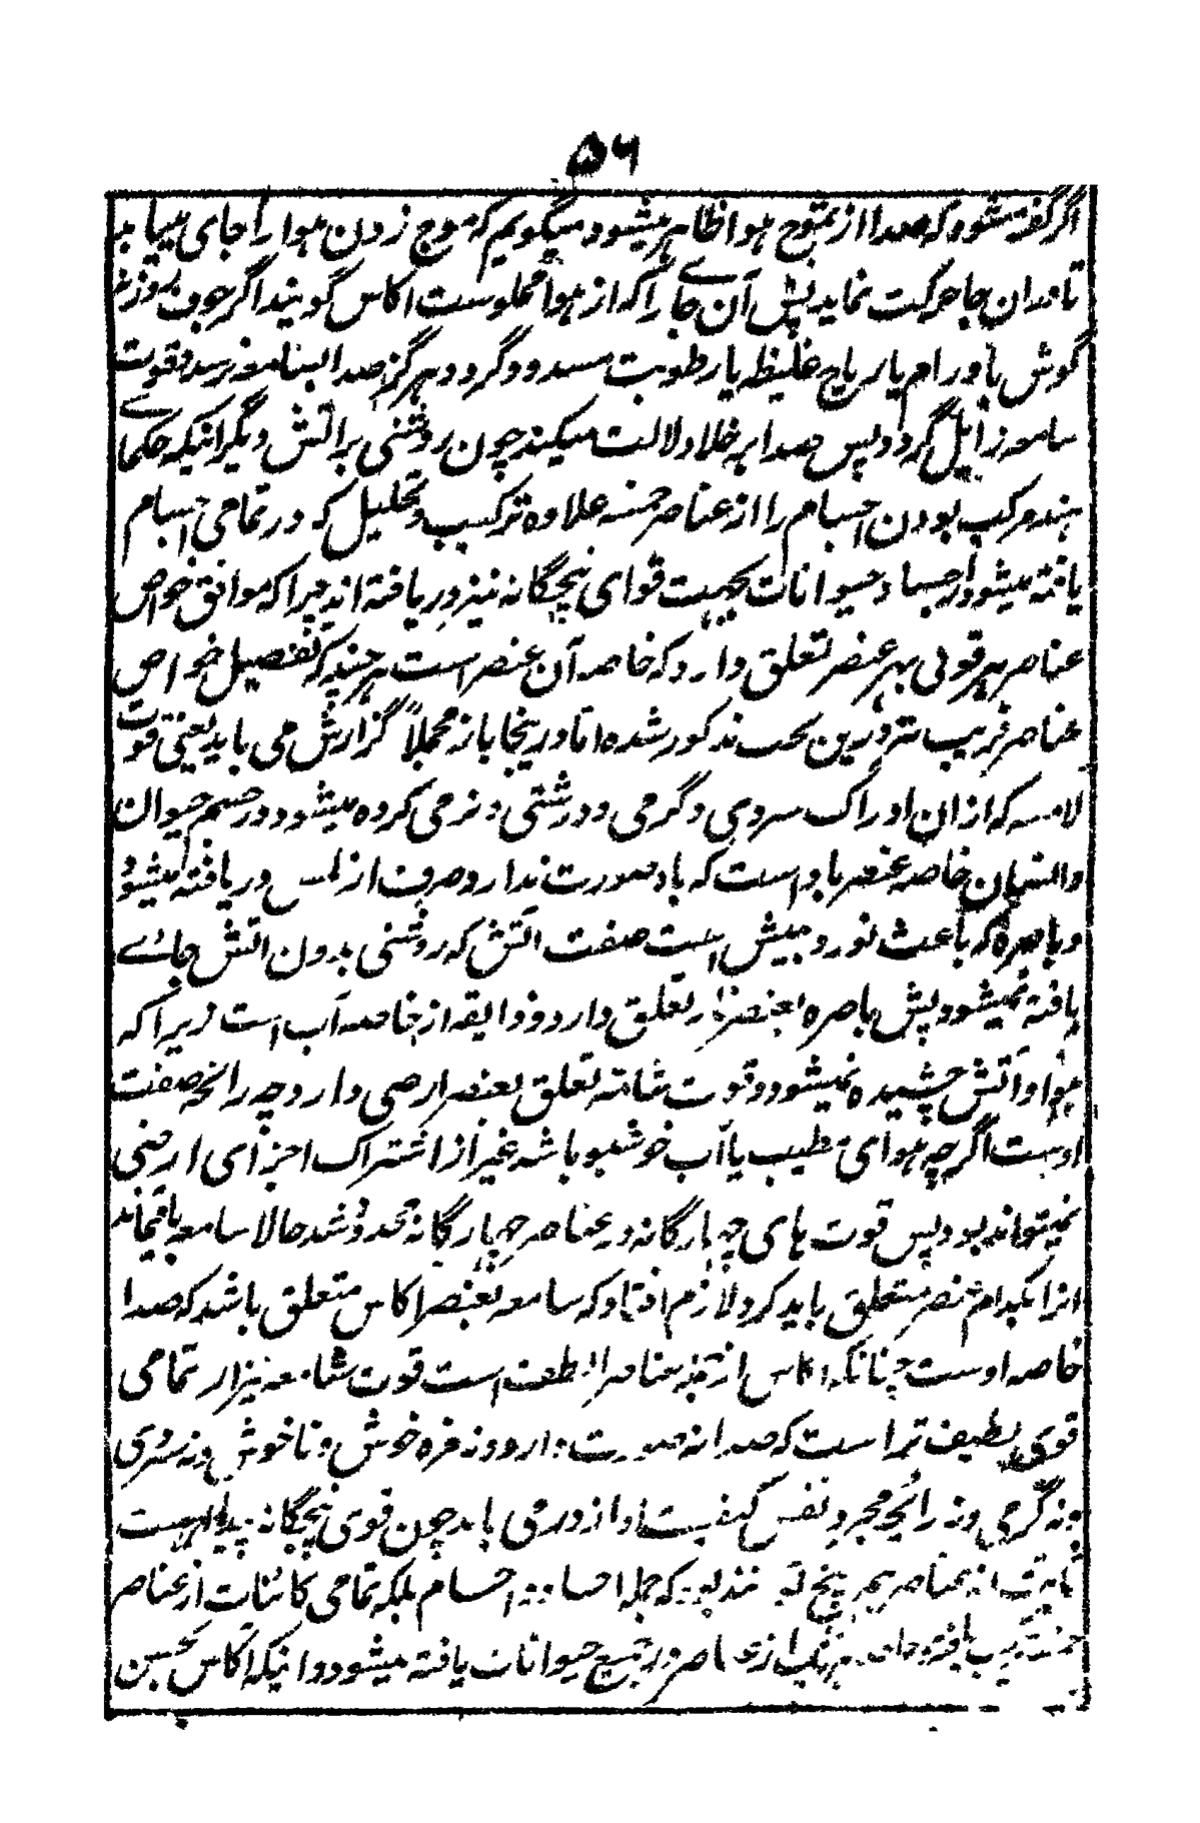 ۵۶
اگر گفته شود که صدا از تموج هوا ظاهر میشود میگویم که موج زدن هوا را جای میباید
تا دران جا حرکت نماید پش آن جاے را که از هوا مملوست اکاس گویند اگر جوف
گوش باورام یا ریاح غلیظه یا رطوبت مسدود گردد هرگز صدا بسامعه نرسد و قوت
سامعه زایل گردد پس صدا بر خلا دلالت میکند چون روشنی بر اتش و دیگر انیکه حکماے
هند مرکب بودن اجسام را از عناصر خمسه علاوه ترکیب و تحلیل که در تمامی اجسام
یافته میشود از اجساد حیوانات بجهت قوای پنچگانه نیز دریافته اند چرا که موافق خواص
عناصر هر قوتی بهر عنصر تعلق دارد که خاصه آن عنصر است هر چند که تفصیل خواص
عناصر قریب تر درین بحث مذکور شده اما درینجا باز مجملاً گزارش می یابد یعنی قوت
لامسه که ازان ادراک سردی و گرمی و درشتی و نرمی کرده میشود در جسم حیوان
و انسان خاصه عنصر باد است که باد صورت ندارد صرف از لمس دریافته میشود
و باصره که باعث نور و بینش است صفت اتش که روشنی بدون اتش جاے
یافته نمیشود پش باصره بعنصر نار تعلق دارد و ذایقه از خاصه آب است زیرا که
هوا و آتش چشیده نمیشود و قوت شامه تعلق بعنصر ارضی دارد چه رائحه صفت
اوست اگرچه هوای طیب یا آب خوشبو باشد غیر از اشتراک اجزای ارضی
نمیتواند بود پس قوت های چهارگانه در عناصر چهارگانه محدود شد حالا سامعه باقیماند
انرا بکدام عنصر متعلق باید کرد لازم افتاد که سامعه بعنصر اکاس متعلق باشد که صدا
خاصه اوست چنانکه اکاس از عناصر الطف است قوت شامعه نیز از تمامی
قوی لطیف تر است که صدا نه صورت دارد و نه مزه خوش و ناخوش و نه سردی
و نه گرمی و نه رائحه مجرد نفس کیفیت او از در می یابد چون قوی پنچگانه
که جمله اجساد و اجسام بلکه تمامی کائنات از عناصر
یافته در جمیع حیوانات یافته میشود و انیکه اکاس